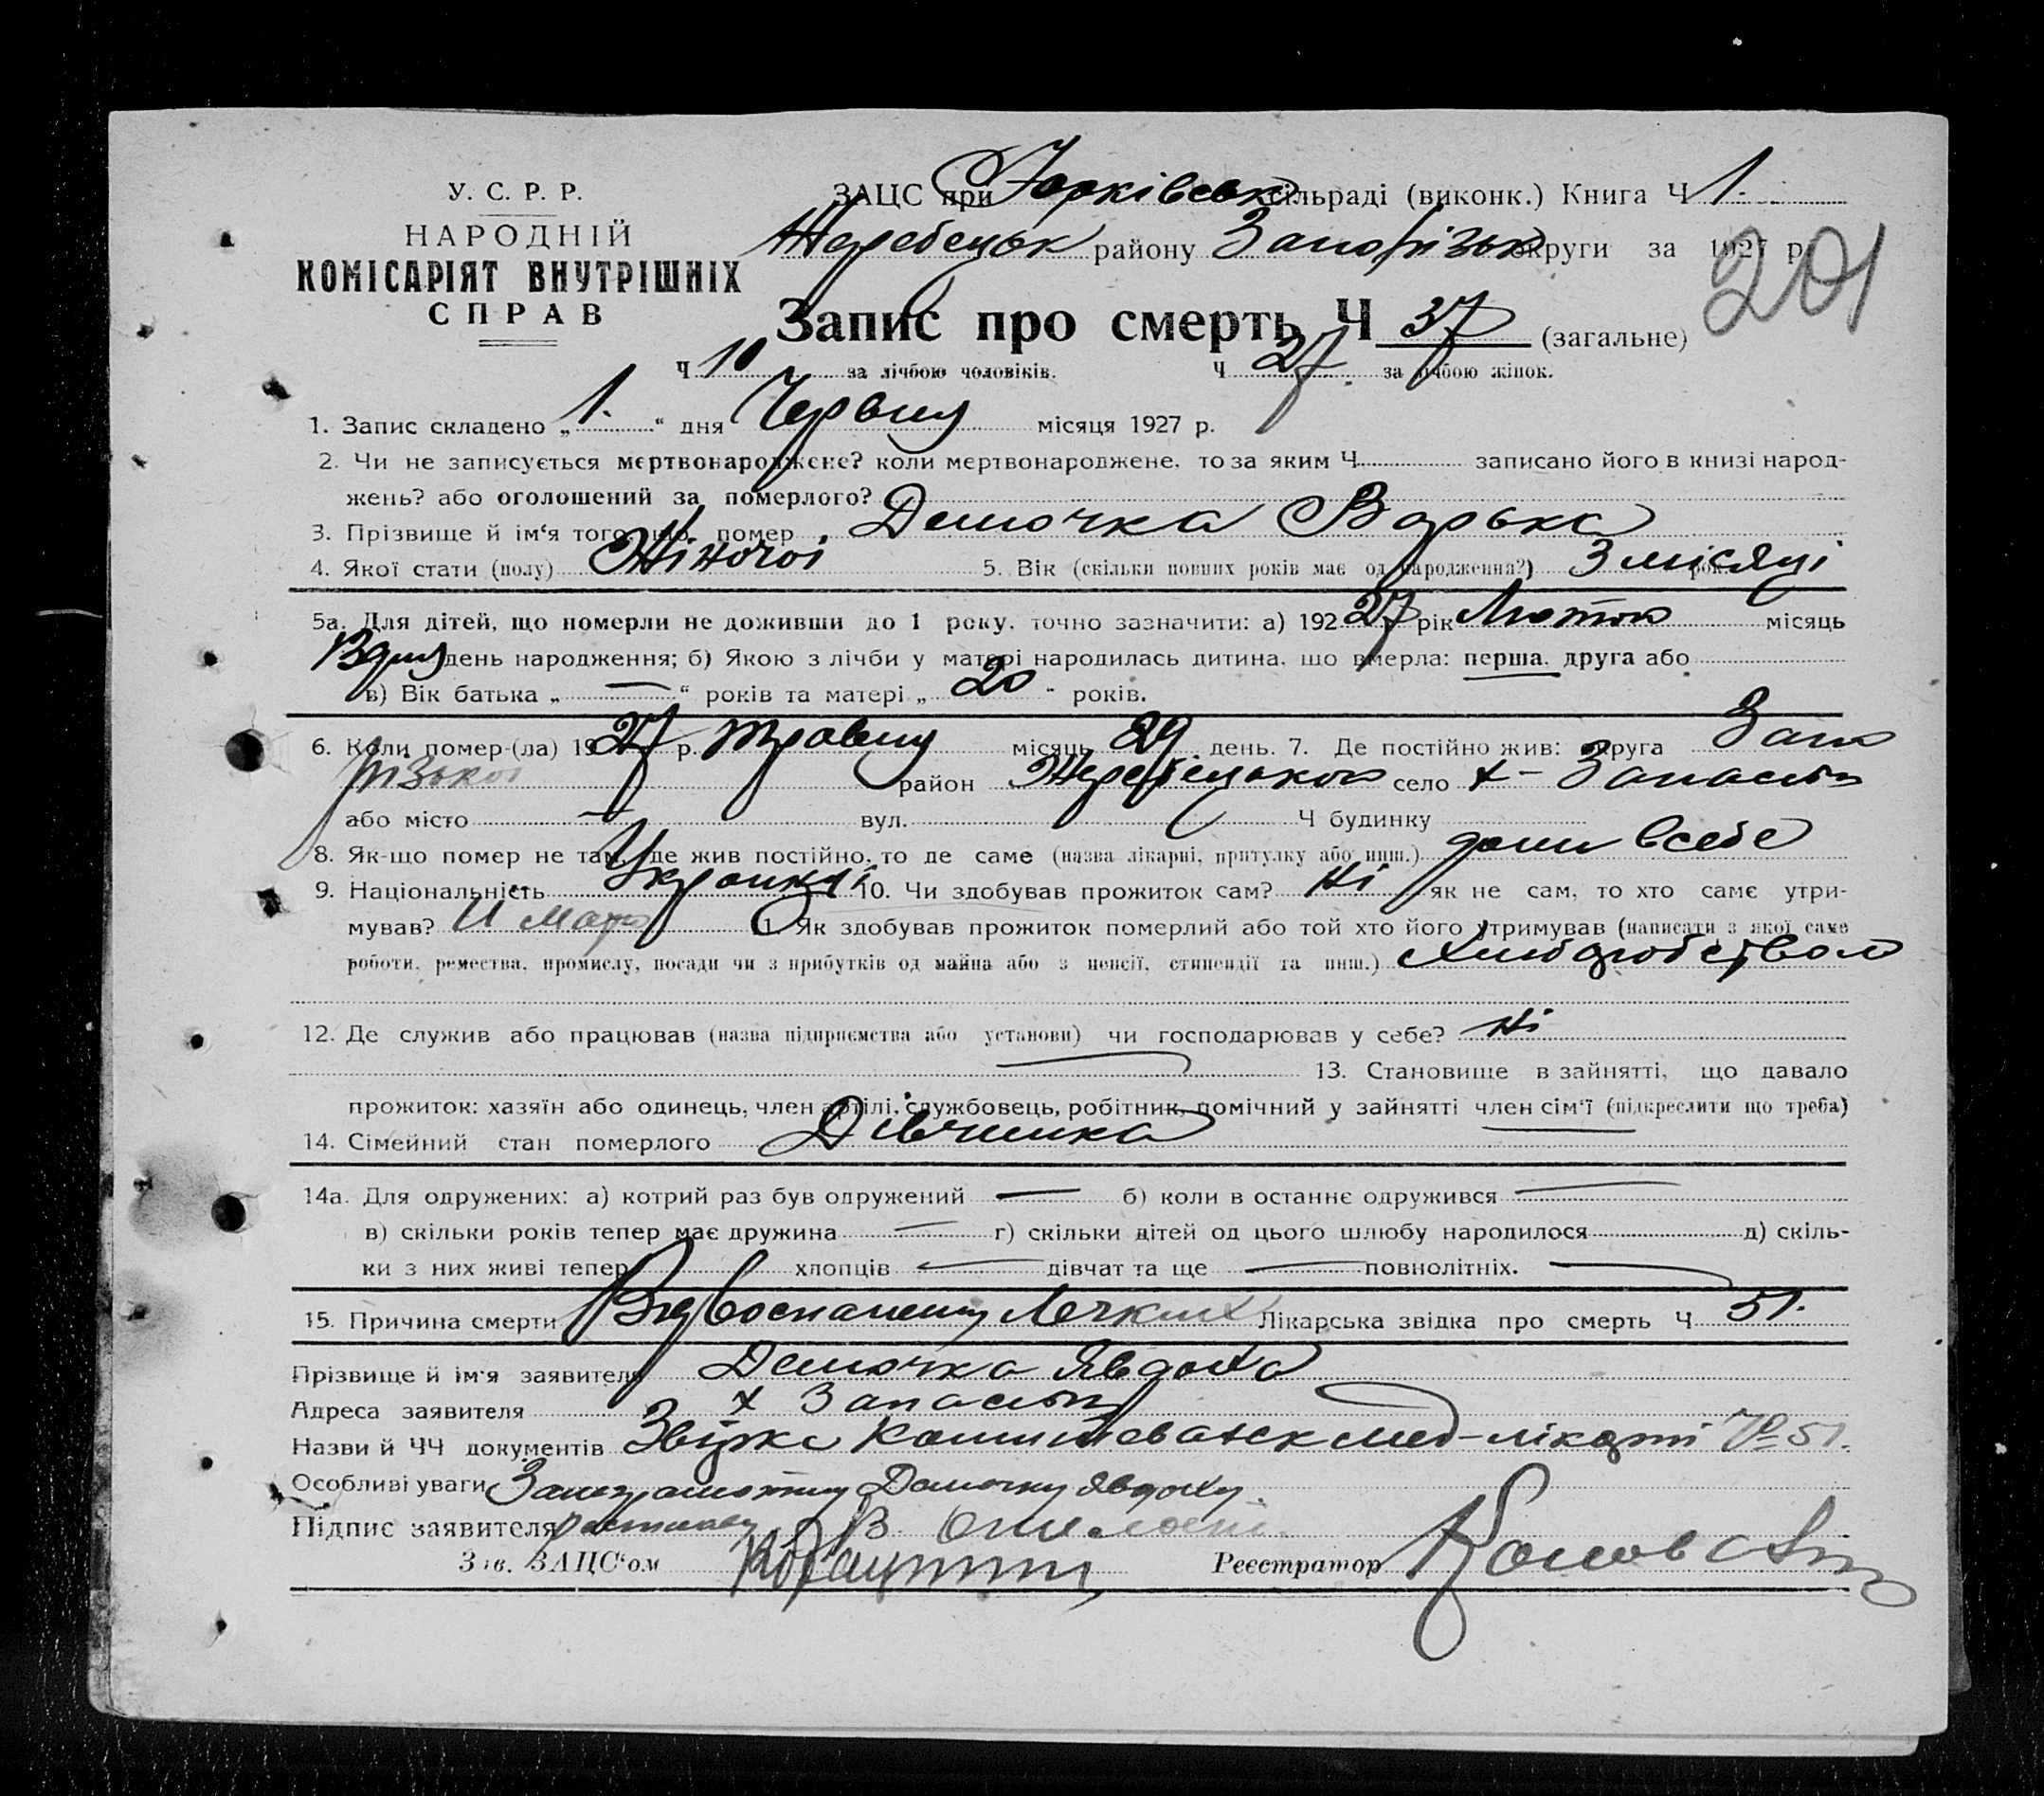 У. С. Р. Р.
НАРОДНІЙ
КОМІСАРІЯТ ВНУТРІШНІХ
СПРАВ
ЗАЦС при Юрківськ сільраді (виконк.) Книга Ч 1.
Жеребецьк району Запорізьк округи за 1927 р.
201
Запис про смерть Ч 37 (загальне)
Ч 10 за лічбою чоловіків. Ч 27. за лічбою жінок.
1. Запис складено „ 1. “ дня Червня місяця 1927 р.
2. Чи не записується мертвонароджене? коли мертвонароджене, то за яким Ч записано його в книзі народ-
жень? або оголошений за померлого?
3. Прізвище й ім‘я того що помер Демочка Варька
4. Якої стати (полу) Жіночої 5. Вік (скільки повних років має од народження?) 3 місяці рок.
5а. Для дітей, що померли не доживши до 1 року, точно зазначити: а) 192 27 рік Лютого місяць
день народження; б) Якою з лічби у матері народилась дитина, що вмерла: перша, друга або
в) Вік батька „ — “ років та матері „ 20 “ років.
6. Коли помер-(ла) 19 27 р. травня місяць 29 день. 7. Де постійно жив: округа Запо
різької район Жеребецького село х-
або місто — вул. Ч будинку
8. Як-що помер не там, де жив постійно, то де саме (назва лікарні, притулку або инш.) дома всебе
9. Національність 10. Чи здобував прожиток сам? Ні як не сам, то хто саме утри-
мував? 11. Як здобував прожиток померлий або той хто його утримував (написати з якої саме
роботи, ремества, промислу, посади чи з прибутків од майна або з пенсії, стипендії та инш.) Хлібаробством
12. Де служив або працював (назва підприємства або установи) чи господарював у себе? Ні
13. Становище в зайнятті, що давало
прожиток: хазяїн або одинець, член артілі, службовець, робітник, помічний у зайнятті член сім‘ї (підкреслити що треба)
14. Сімейний стан померлого Дівчинка
14а. Для одружених: а) котрий раз був одружений — б) коли в останнє одружився —
в) скільки років тепер має дружина — г) скільки дітей од цього шлюбу народилося д) скіль-
ки з них живі тепер хлопців — дівчат та ще — повнолітніх. —
15. Причина смерти Лікарська звідка про смерть Ч 51.
Прізвище й ім‘я заявителя Демочка Явдоха
Адреса заявителя х
Назви й ЧЧ документів № 51.
Особливі уваги Демочку Явдоху.
Підпис заявителя
Зав. ЗАЦС‘ом Реєстратор